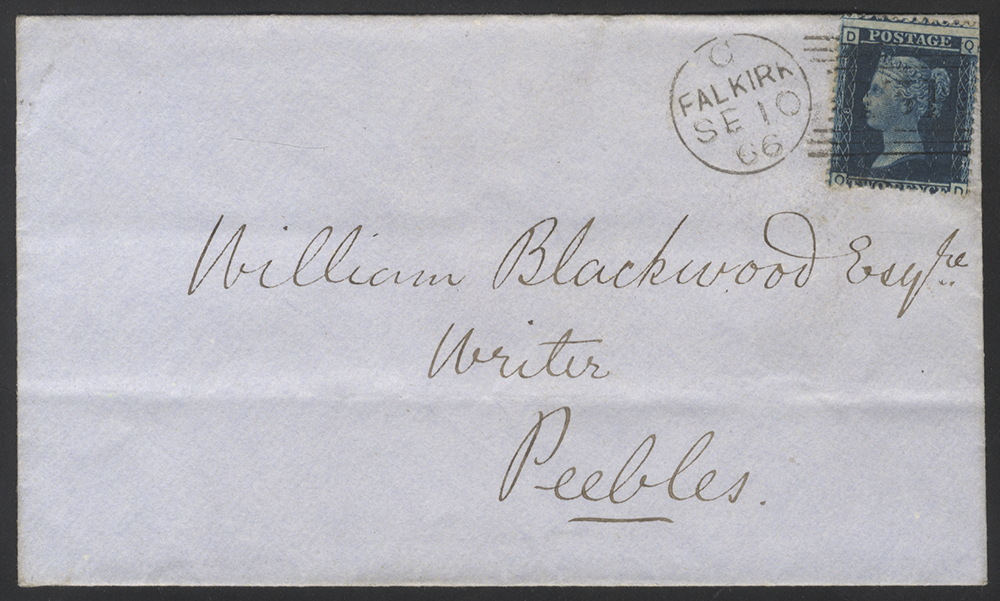 C
FALKIRK
SE 10
66
D POSTAGE Q
Q D
William Blackwood Esqre
Writer
Peebles.